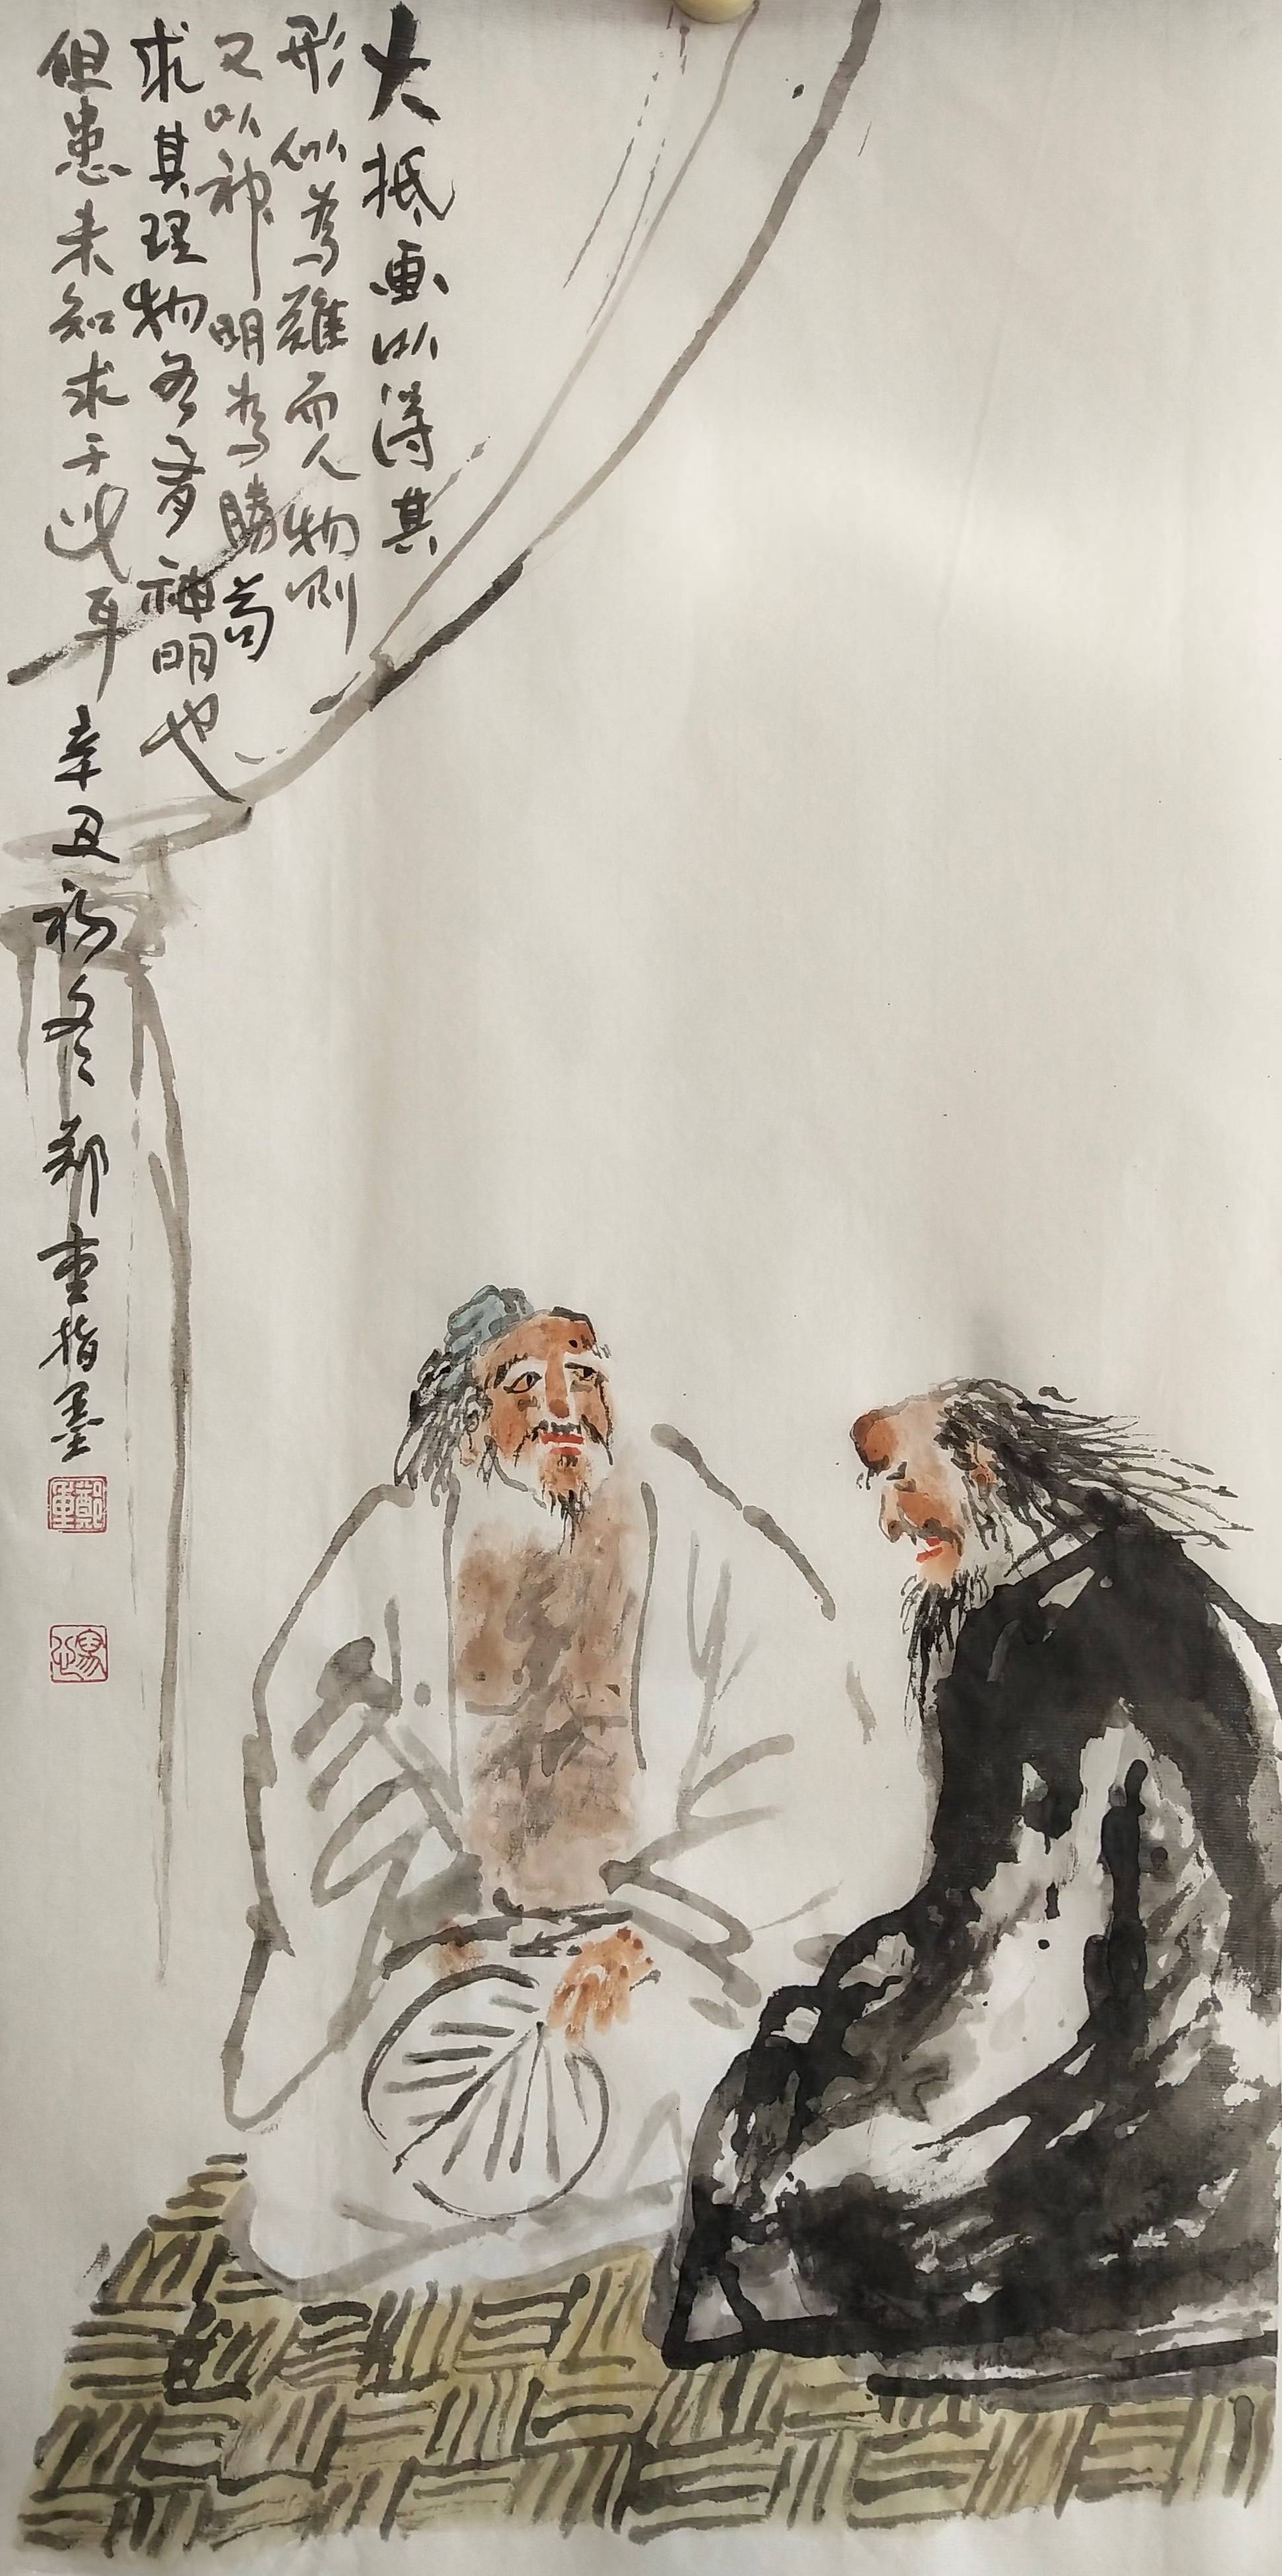 大抵画以得其
形似為難而人物則
又以神明為勝苟
求其理物各有神明也
但患未知求于此耳 辛丑初冬 鄭重指墨
鄭重